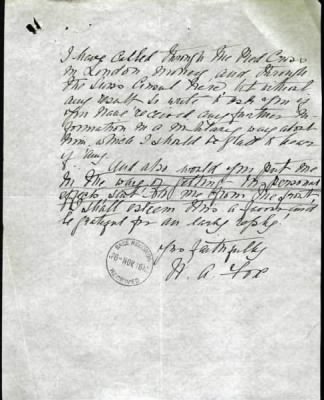 I have cabled through the Red Cross
in London inquiry and through
the Swiss Consul here but without
any result so write to ask you if
you have received any further in-
formation in a military way about
him, which I should be glad to hear
if any.
And also would you put me
in the way of getting his personal
effects sent to me from the front,
I shall esteem this a favour and
be grateful for an early reply.
Yrs faithfully
H. A. Fox
BASE RECORDS
28 NOV 1917
RECEIVED